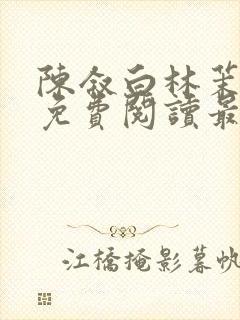 陳敘白林茉
免費閱讀最
江橋掩影暮帆